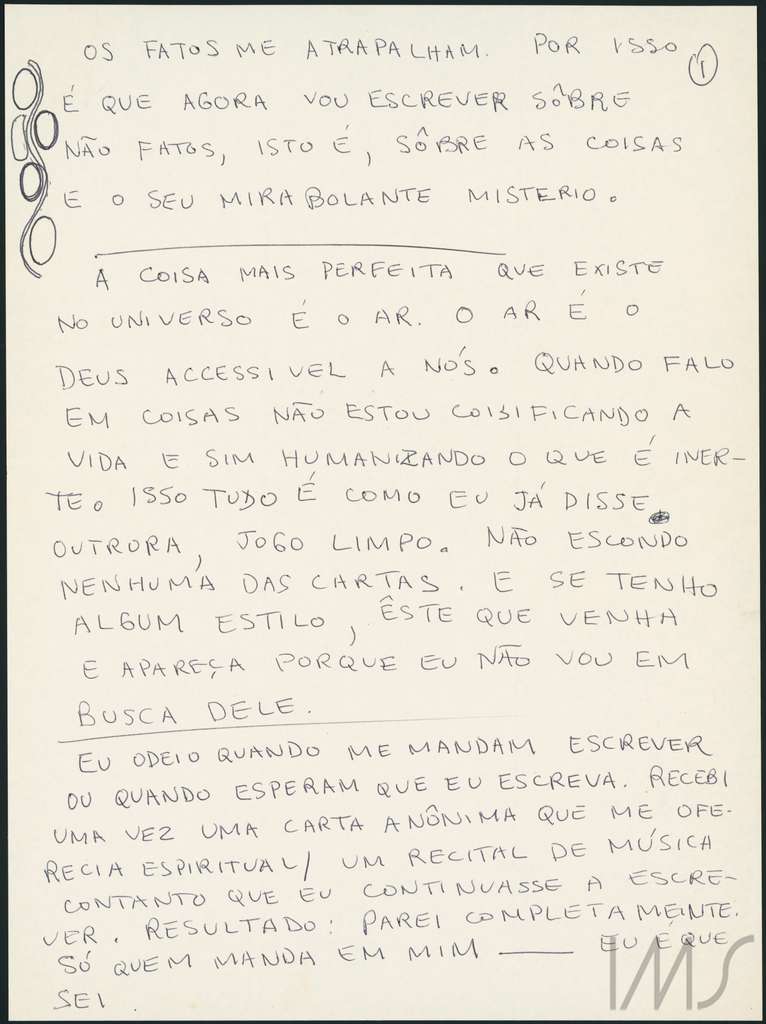 OS FATOS ME ATRAPALHAM. POR ISSO
1
É QUE AGORA VOU ESCREVER SÔBRE
NÃO FATOS, ISTO É, SÔBRE AS COISAS
E O SEU MIRABOLANTE MISTERIO.
A COISA MAIS PERFEITA QUE EXISTE
NO UNIVERSO É O AR. O AR É O
DEUS ACCESSIVEL A NÓS. QUANDO FALO
EM COISAS NÃO ESTOU COISIFICANDO A
VIDA E SIM HUMANIZANDO O QUE É INER-
TE. ISSO TUDO É COMO EU JÁ DISSE
OUTRORA, JOGO LIMPO. NÃO ESCONDO
NENHUMA DAS CARTAS. E SE TENHO
ALGUM ESTILO, ÊSTE QUE VENHA
E APAREÇA PORQUE EU NÃO VOU EM
BUSCA DELE.
EU ODEIO QUANDO ME MANDAM ESCREVER
OU QUANDO ESPERAM QUE EU ESCREVA. RECEBI
UMA VEZ UMA CARTA ANÔNIMA QUE ME OFE-
RECIA ESPIRITUAL/ UM RECITAL DE MÚSICA
CONTANTO QUE EU CONTINUASSE A ESCRE-
VER. RESULTADO: PAREI COMPLETAMEINTE.
SÓ QUEM MANDA EM MIM — EU É QUE
SEI.
IMS